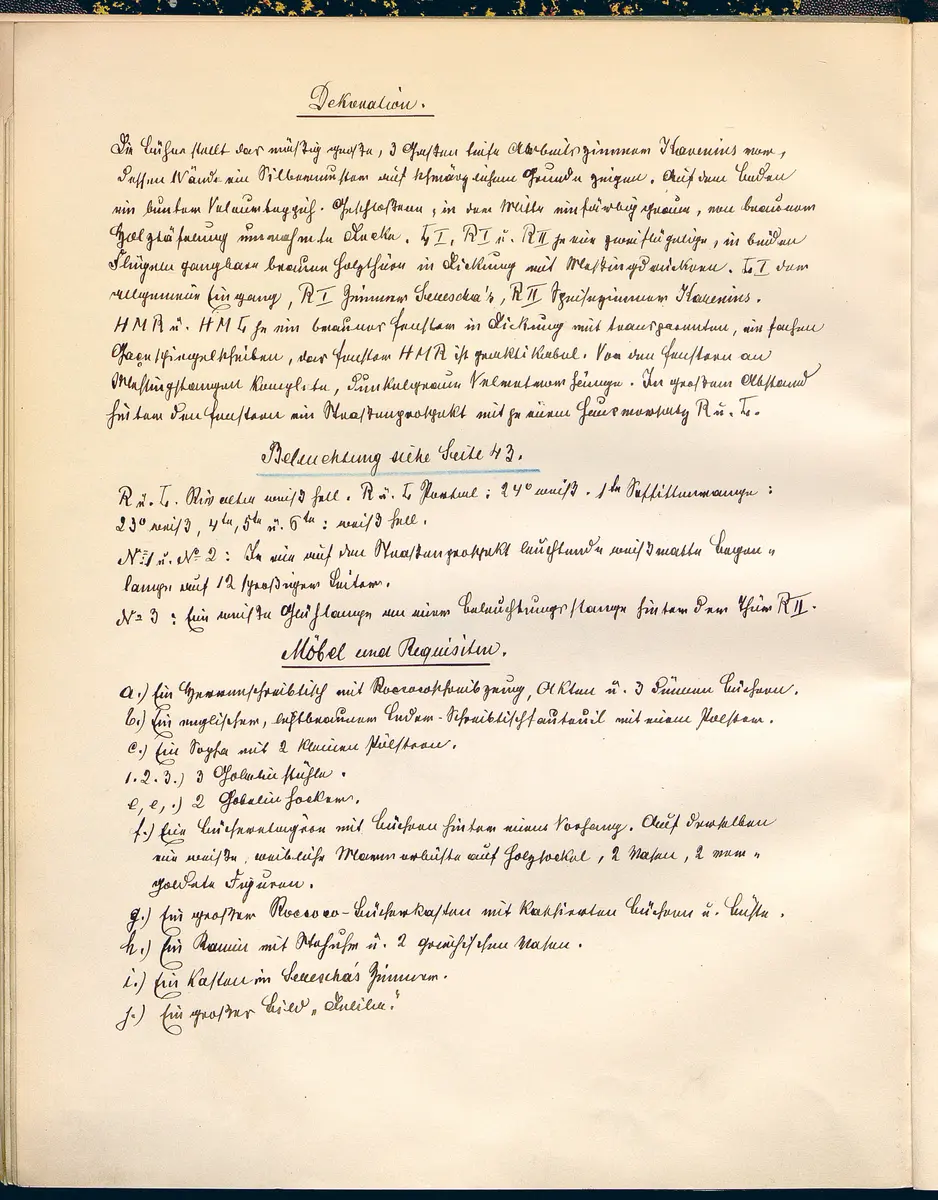 Dekoration.
Die Bühne stellt das mäßig große, 3 Gassen tiefe Arbeitszimmer Karenins vor,
dessen Wände ein Silbermuster auf schwärzlichem Grunde zeigen. Auf dem Boden
ein bunter Velourteppich. Geschlossene, in der Mitte einfärbig graue, von braunem
Holztäfelung umrahmte Decke. L I, R I u. R II je eine zweiflügelige, in beiden
Flügeln gangbare braune Holzthüre in Dickung mit Messingdrückern. L I der
allgemeine Eingang, R I Zimmer Serescha's, R II Speisezimmer Karenins.
HMR u. HML je ein braunes Fenster in Dickung mit transparenten, einfachen
Gazespiegelscheiben, das Fenster HMR ist praktikabel. Vor den Fenstern an
Messingstangen komplete, dunkelgraue Velvetvorhänge. In großem Abstand
hinter den Fenstern ein Straßenprospekt mit je einem Hausversatz R u. L.
Beleuchtung siehe Seite 43.
R u. L Rivalta weiß hell. R u. L Portal: 24° weiß. 1te Soffittenrampe:
23° weiß, 4te, 5te u. 6te: weiß hell.
No 1 u. No 2: Je eine auf den Straßenprospekt leuchtende weißmatte Bogen-
lampe auf 12 sproßiger Leiter.
No 3: Ein weiße Glühlampe an einer Beleuchtungsstange hinter der Thür R II.
Möbel und Requisiten.
a.) Ein Herrenschreibtisch mit Roccocoschreibzeug, Akten u. 3 dünnen Büchern.
b.) Ein englischer, lichtbrauner Leder-Schreibtischfauteuil mit einem Polster.
c.) Ein Sopha mit 2 kleinen Pölstern.
1. 2. 3.) 3 Gobelinstühle.
e, e,.) 2 Gobelinhocker.
f.) Eine Bücheretagère mit Büchern hinter einem Vorhang. Auf derselben
eine weiße, weibliche Marmorbüste auf Holzsockel, 2 Vasen, 2 ver-
goldete Figuren.
g.) Ein großer Roccoco-Bücherkasten mit kaschierten Büchern u. Büste.
h.) Ein Kamin mit Stehuhr u. 2 griechischen Vasen.
i.) Ein Kasten in Serescha's Zimmer.
j.) Ein großes Bild